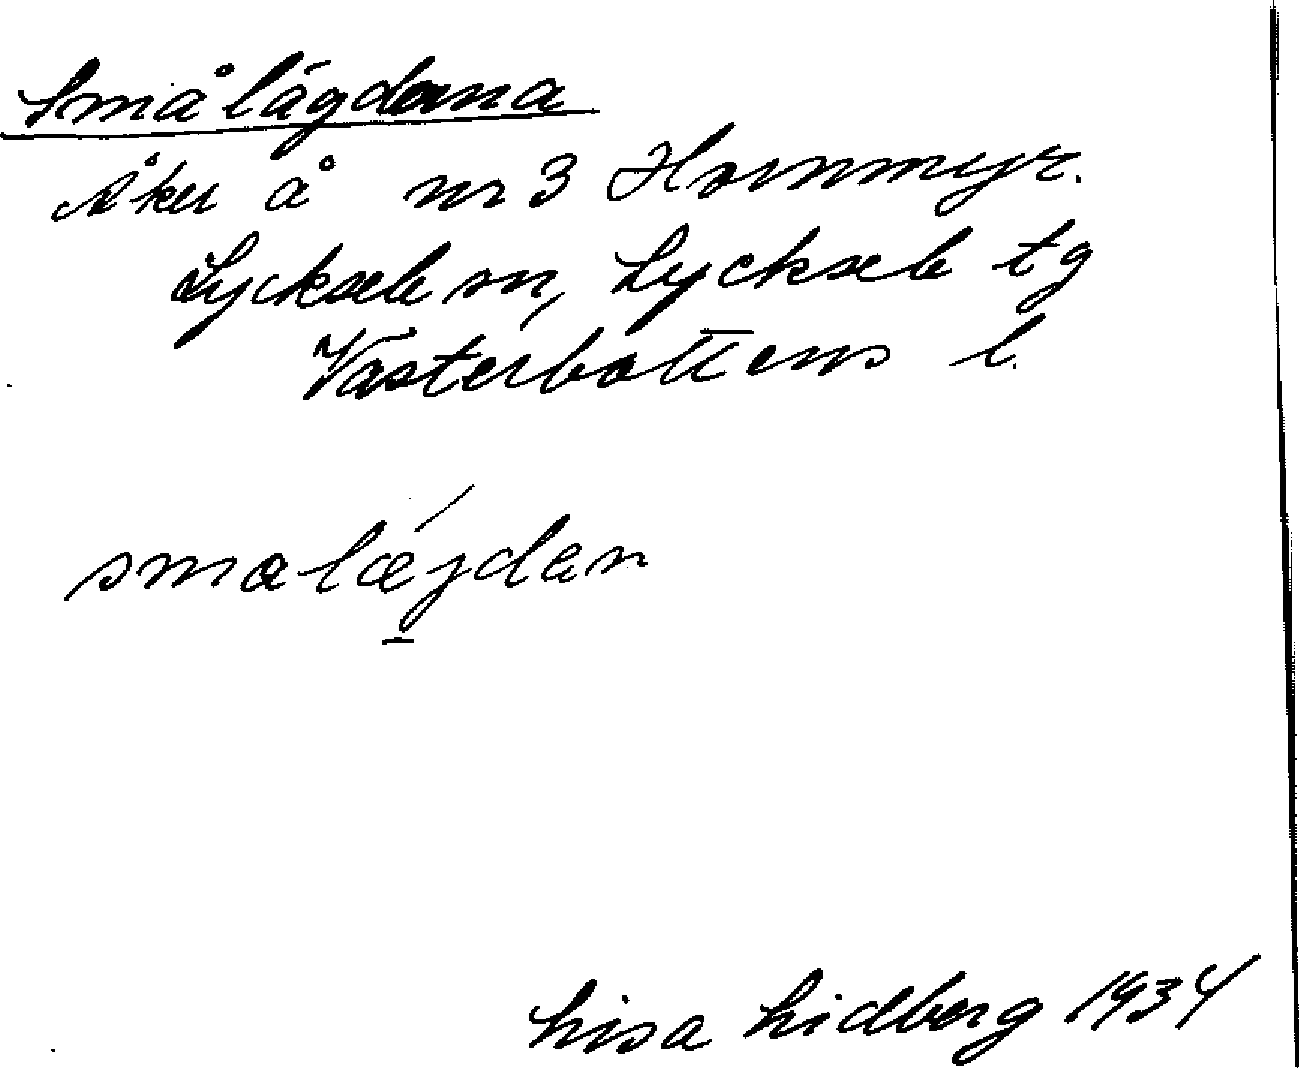 Smålägdorna
Åker å nr 3 Hornmyr.
Lycksele sn, Lycksele tg
Västerbottens l.
smalǽjdan
Lisa Lidberg 1934